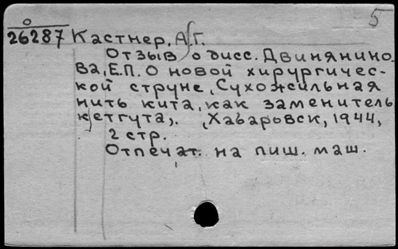 5
26287 Кастнер, А.Г.
Отзыв о дисс. Двинянино-
ва, Е.П. О новой хирургичес-
кой струне, Сухожильная
нить кита, как заменитель
кетгута). Хабаровск, 1944,
2 стр.
Отпечат. на пиш. маш.